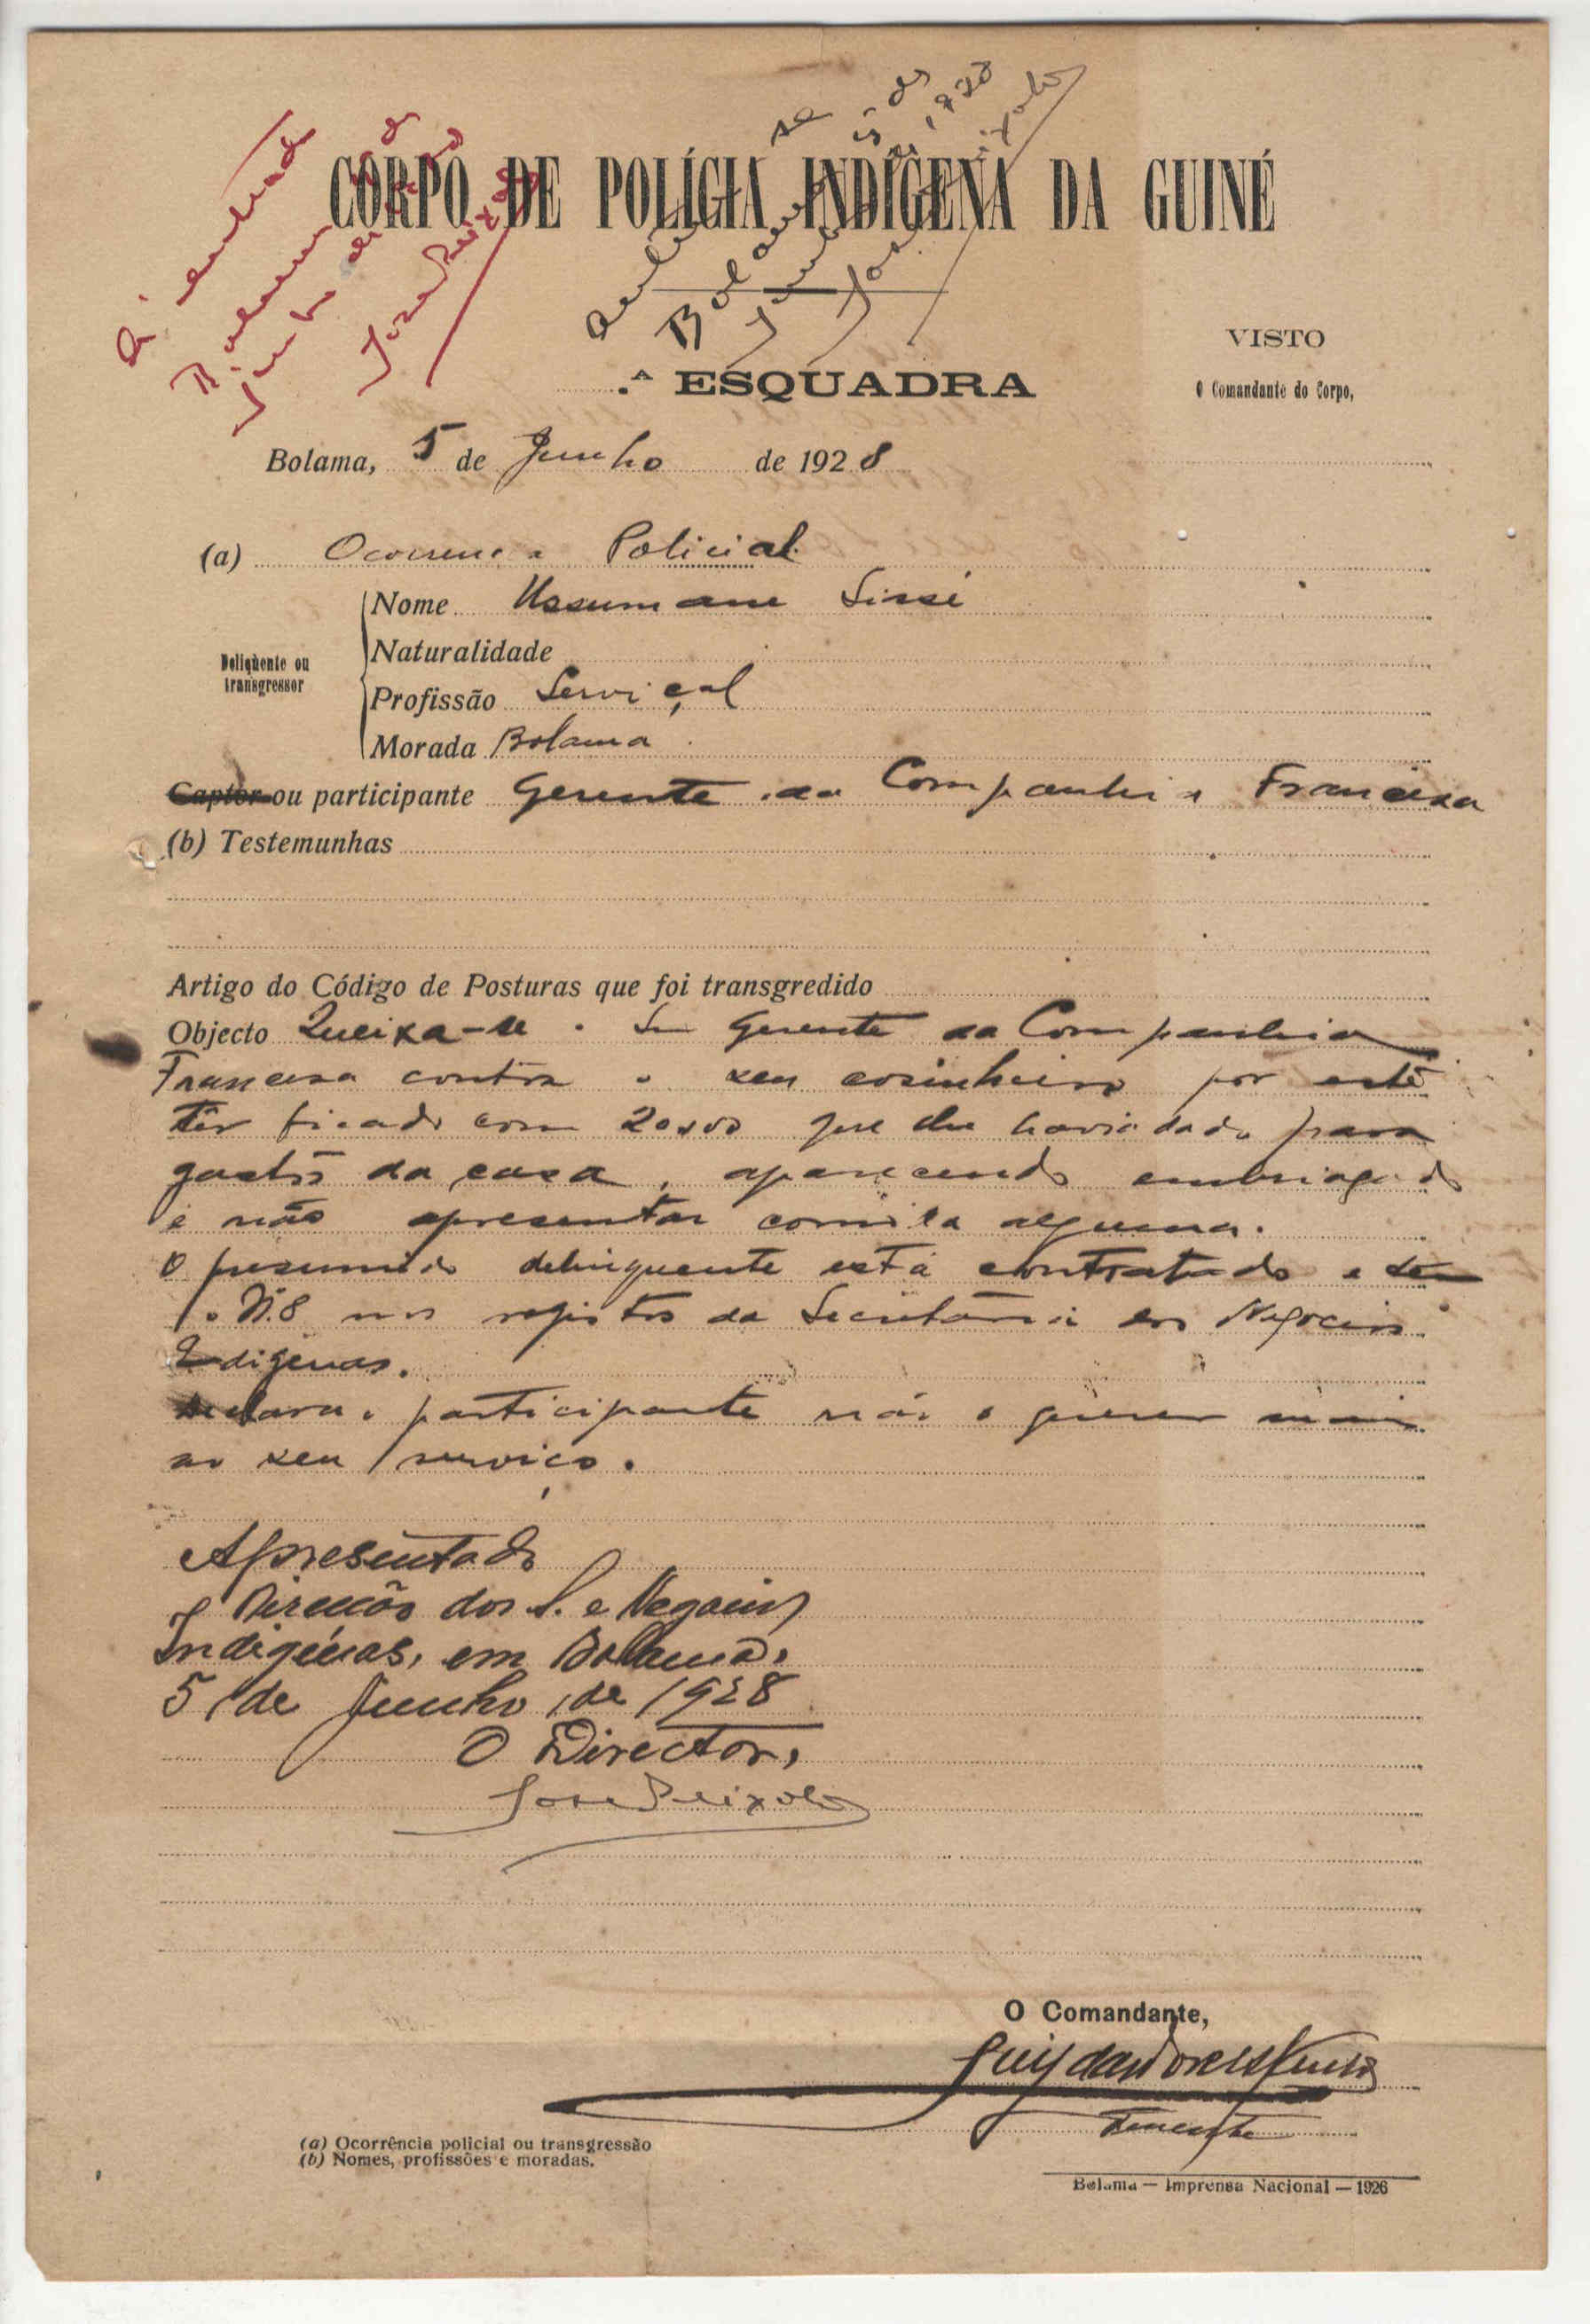 CORPO DE POLÍCIA INDÍGENA DA GUINÉ
José Peixoto
.ª ESQUADRA
VISTO
O Comandante do Corpo,
Bolama, 5 de Junho de 1928
(a) Ocorrencia Policial
Delinqùente ou transgressor
Nome Ussumane Sissé
Naturalidade
Profissão Serviçal
Morada Bolama
Captor ou participante Gerente da Companhia Francesa
(b) Testemunhas
Artigo do Código de Posturas que foi transgredido
Objecto Queixa-se o Snr Gerente da Companhia
Francesa contra o seu cosinheiro por este
têr ficado com 20$00 que lhe havia dado para
gastos da casa, aparecendo embriagado
e não apresentar comida alguma.
O presumido delinquente está contratado e tem
o N.8 nos registos da Secretaria dos Negocios
Indigenas.
Declara o participante não o querer mais
ao seu serviço.
Apresentado
Direcção dos S. e Negocios
Indigénas, em Bolama,
5 de Junho de 1928
O Director,
José Peixoto
O Comandante,
Tenente
(a) Ocorrência policial ou transgressão
(b) Nomes, profissões e moradas.
Bolama — Imprensa Nacional — 1926